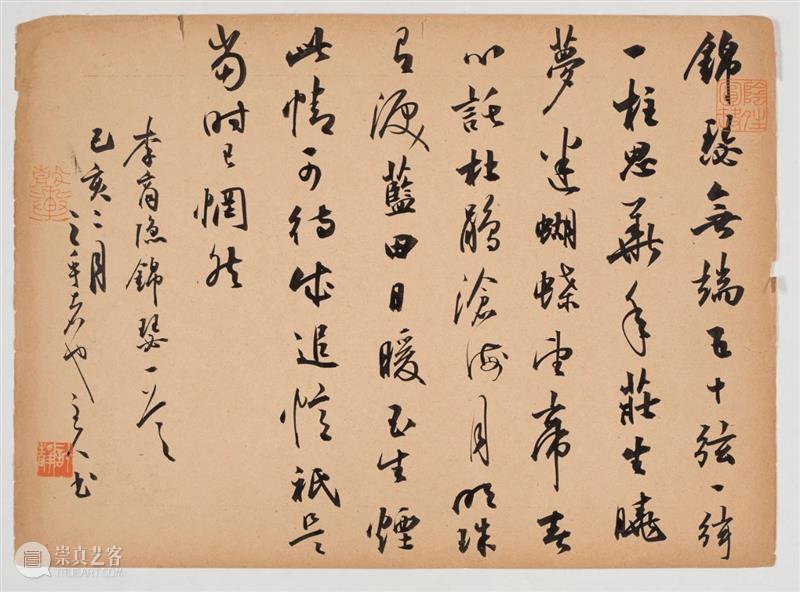 錦瑟無端五十弦一弦
一柱思華年莊生曉
夢迷蝴蝶望帝春
心託杜鵑滄海月明珠
有淚藍田日暖玉生煙
此情可待成追憶祇是
当时已惘然
李商隐錦瑟一首
己亥二月
之乎者也主人书
崇真艺客
TRUEART.COM